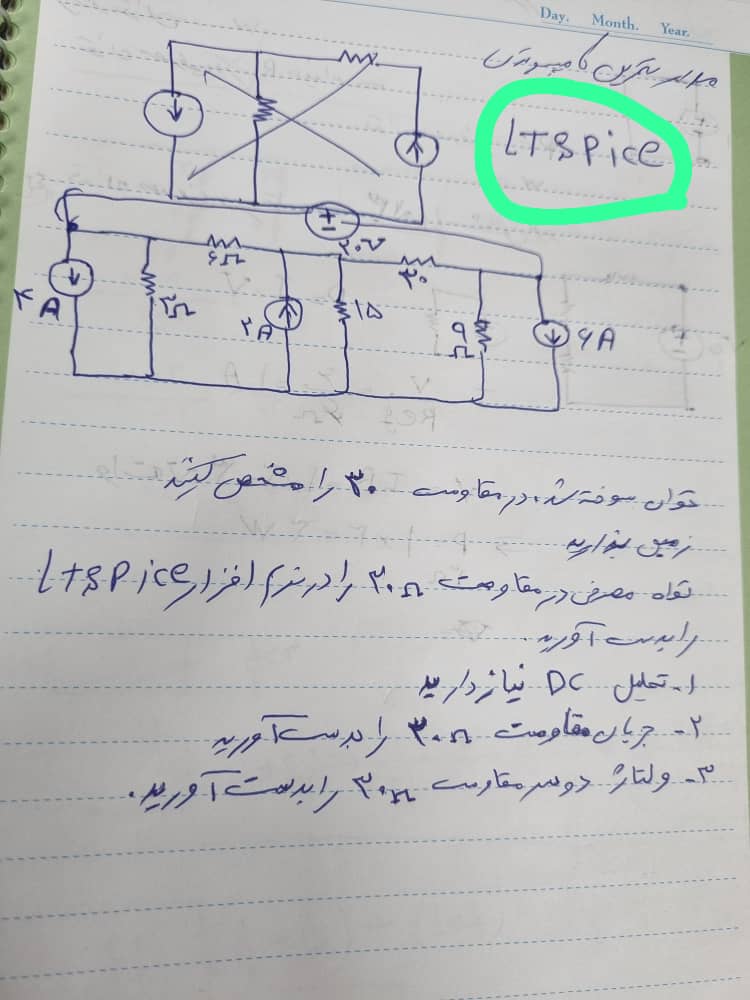 Day. Month. Year.
کامپیوتری
LTSpice
۲۰V
۶Ω
۳۰
۳Ω
۲A
۱۵
۹Ω
۶A
توان سوخته شده در مقاومت ۳۰ را مشخص کنید
زمین بگذارید
توان مصرفی در مقاومت ۳۰Ω را در نرم افزار LTSPice
را بدست آورید.
۱- تحلیل DC نیاز دارید
۲- جریان مقاومت ۳۰Ω را بدست آورید
۳- ولتاژ دو سر مقاومت ۳۰Ω را بدست آورید.